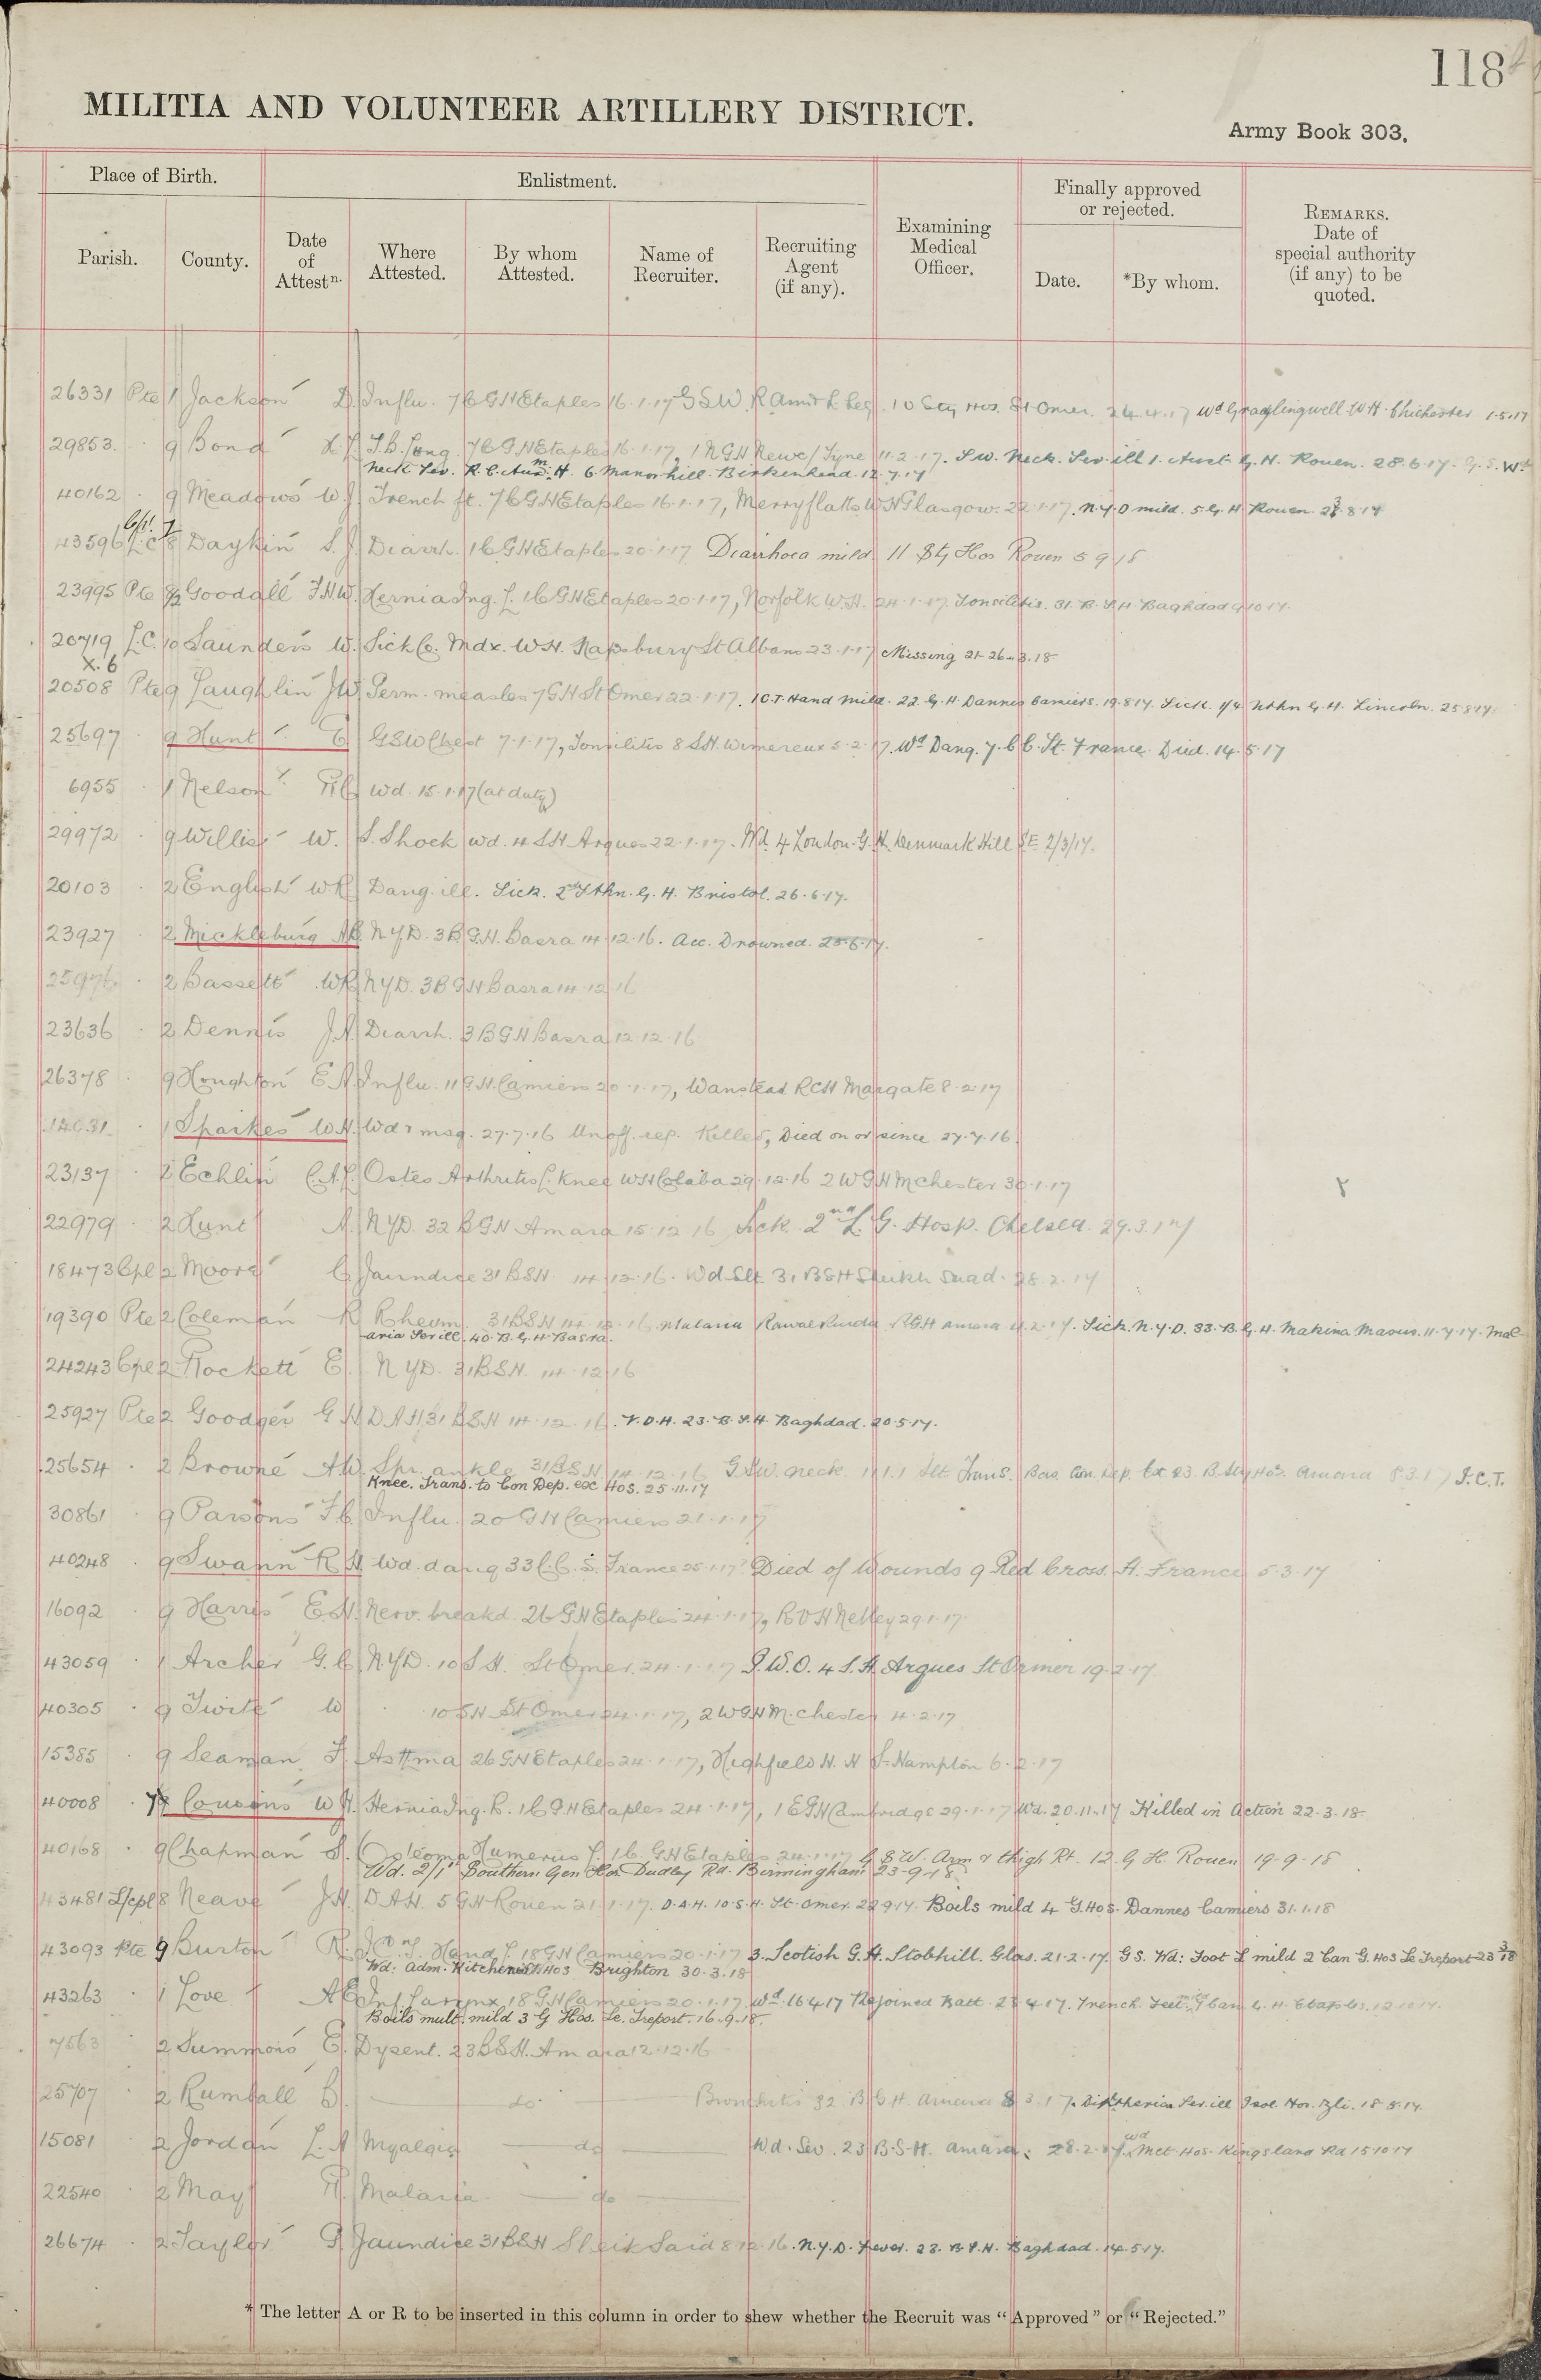 118
MILITIA AND VOLUNTEER ARTILLERY DISTRICT.
Army Book 303.
Place of Birth. Enlistment. Finally approved or rejected.
Parish. County. Date of Attestn. Where Attested. By whom Attested. Name of Recruiter. Recruiting Agent (if any). Examining Medical Officer. Date. *By whom. REMARKS. Date of special authority (if any) to be quoted.
26331 Pte 1 Jackson D. Influ. 7 C G H Etaples 16.1.17 G S W. R Arm & L Leg. 10 Sty Hos. St Omer. 24.4.17 Wd Graylingwell W H. Chichester 1.5.17
29853 . 9 Bond H. J. I.B. Lung. 7 C G H Etaples 16.1.17, 1 N G H Newc/Tyne 11.2.17. S.W. Neck. Sev. ill 1. Aust. G. H. Rouen. 28.6.17. G.S. Wd
Neck Sev. R.C. Aux. H 6 Manor hill. Birkenhead. 12.7.17
40162 . 9 Meadows W. J. Trench ft. 7 C G H Etaples 16.1.17, Merryflatts W H Glasgow. 22.1.17. N.Y.D mild. 5. G. H Rouen 23.8.17
Cpl. 7
43596 L.C 8 Daykin S. J. Diarrh. 1 C G H Etaples 20.1.17 Diarrhoea mild 11 Sty Hos Rouen 5 9 18
23995 Pte 9/2 Goodall F.H.W. Hernia Ing. L. 1 C G H Etaples 20.1.17, Norfolk W.H. 24.1.17. Tonsilitis. 31. B. S. H. Baghdad 9.10.17.
20719 L.C. 10 Saunders W. Sick Co. Mdx. W H. Napsbury St Albans 23.1.17 Missing 21-26.3.18
X. 6
20508 Pte 9 Laughlin J W. Germ. measles 7 G H St Omer 22.1.17. I C.T. Hand mild. 22. G. H. Dannes Camiers. 19.8.17. Sick. 1/4 Nthn G. H. Lincoln. 25.8.17.
25697 . 9 Hunt E G S W Chest 7.1.17, Tonsilitis 8 S H. Wimereux 5.2.17. Wd Dang. 7. C C. St. France. Died. 14.5.17
6955 . 1 Nelson H C Wd. 15.1.17 (at duty)
29972 . 9 Willis W. S. Shock wd. 4 S H Arques 22.1.17. Wd. 4 London. G. H. Denmark Hill S E 2/3/17.
20103 . 2 English W R Dang. ill. Sick. 2nd Sthn. G. H. Bristol. 26.6.17.
23927 . 2 Mickleburg A B. N Y D. 3 B G. H. Basra 14.12.16. Acc. Drowned. 25.6.17.
25976 . 2 Bassett W R N Y D. 3 B G H Basra 14.12.16
23636 . 2 Dennis J. A. Diarrh. 3 B G H Basra 12.12.16
26378 . 9 Houghton E. A. Influ. 11 G. H. Camiers 20.1.17, Wanstead R C H Margate 8.2.17
14631 . 1 Sparkes W H. Wd & msg. 27.7.16 Unoff. rep. Killed, Died on or since 27.7.16.
23137 . 2 Echlin C. A. J. Osteo Arthritis L. Knee W H Colaba 29.12.16 2 W G H Mchester 30.1.17
22979 . 2 Hunt A. N Y D. 32 B G H Amara 15.12.16 Sick. 2nd L. G. Hosp. Chelsea. 29.3.17
18473 Cpl 2 Moore C. Jaundice 31 B S H 14.12.16. Wd Slt 31 B S H Sheikh Saad. 28.2.17
19390 Pte 2 Coleman R Rheum. 31 B S H 14.12.16 Malaria Rawal Pindi R G H Amara 2.17. Sick. N.Y.D. 33. B. G. H. Makina Masus. 11.7.17. Mal-
-aria Sev ill. 40. B. G. H. Basra.
24243 Cpl 2 Rockett E. N Y D. 31 B S H. 14.12.16
25927 Pte 2 Goodger G H D A H 31 B S H 14.12.16. V.D.H. 23. B. S. H. Baghdad. 20.5.17.
25654 . 2 Browne A W. Spr. ankle 31 B S H 14.12.16 G.S.W. Neck. Slt Trans. Bas. Con. Dep. Ex 23. B. Sty Hos. Amara 8.3.17 I.C.T.
Knee. Trans. to Con Dep. ex Hos. 25.11.17
30861 . 9 Parsons F C. Influ. 20 G H Camiers 21.1.17
40248 . 9 Swann R H Wd. dang 33 C. C. S. France 25.1.17 Died of Wounds 9 Red Cross. H. France 5.3.17
16092 . 9 Harris E. H. Nerv. breakd. 26 G H Etaples 24.1.17, R V H Netley 29.1.17
43059 . 1 Archer G. C. N Y D. 10 S H. St Omer. 24.1.17 P.U.O. 4 S. H. Arques St Omer 19.2.17
40305 . 9 Twite W . 10 S H St Omer 24.1.17, 2 W G H M.chester 4.2.17
15385 . 9 Seaman F. Asthma 26 G H Etaples 24.1.17, Highfield H. H S-Hampton 6.2.17
40008 . 7 Cousins W H. Hernia Ing. R. 1 C G H Etaples 24.1.17, 1 E G H Cambridge 29.1.17 Wd. 20.11.17 Killed in Action 22.3.18
40168 . 9 Chapman S. Osteoma Humerus L. 1 C. G H Etaples 24.1.17 G S W. Arm & thigh Rt. 12 G H. Rouen 19-9-18
Wd. 2/1 Southern Gen Hos Dudley Rd. Birmingham 23-9-18.
43481 L/cpl 8 Neave J H. D A H. 5 G H Rouen 21.1.17. D.A.H. 10.S.H. St. Omer. 22.9.17. Boils mild 4 G. Hos. Dannes Camiers 31.1.18
43093 Pte 9 Burton R. J. Hand L. 18 G H Camiers 20.1.17 3. Scotish G. H. Stobhill. Glas. 21-2-17. G S. Wd: Foot L mild 2 Can G. Hos Le Treport 23 3/18
Wd: Adm. Kitcheners Hos Brighton 30.3.18
43263 . 1 Love A E Inf Larynx, 18 G H Camiers 20.1.17 Wd. 16 4 17 Rejoined Batt. 23 4.17. Trench. Feet. 7 Can. G. H. Etaples. 12.10.17.
Boils mult. mild 3 G Hos. Le. Treport. 16.9.18.
7563 2 Summons E. Dysent. 23 B S H. Amara 12.12.16
25707 . 2 Rumball B. do Bronchitis 32 B G H. Amara 8 3.17. Diphtheria Sev. ill Isol. Hos. Bzli. 18.5.17.
15081 . 2 Jordan L. A Myalgia do Wd. Sev. 23 B.S.H. Amara. 28.2.17. wd Met. Hos. Kingsland Rd 15 10 17
22540 . 2 May H. Malaria. do
26674 . 2 Taylor P. Jaundice 31 B S H Sheik Said 8.12.16. N.Y.D. Fever. 23. B. S. H. Baghdad. 14.5.17.
* The letter A or R to be inserted in this column in order to shew whether the Recruit was “Approved” or “Rejected.”